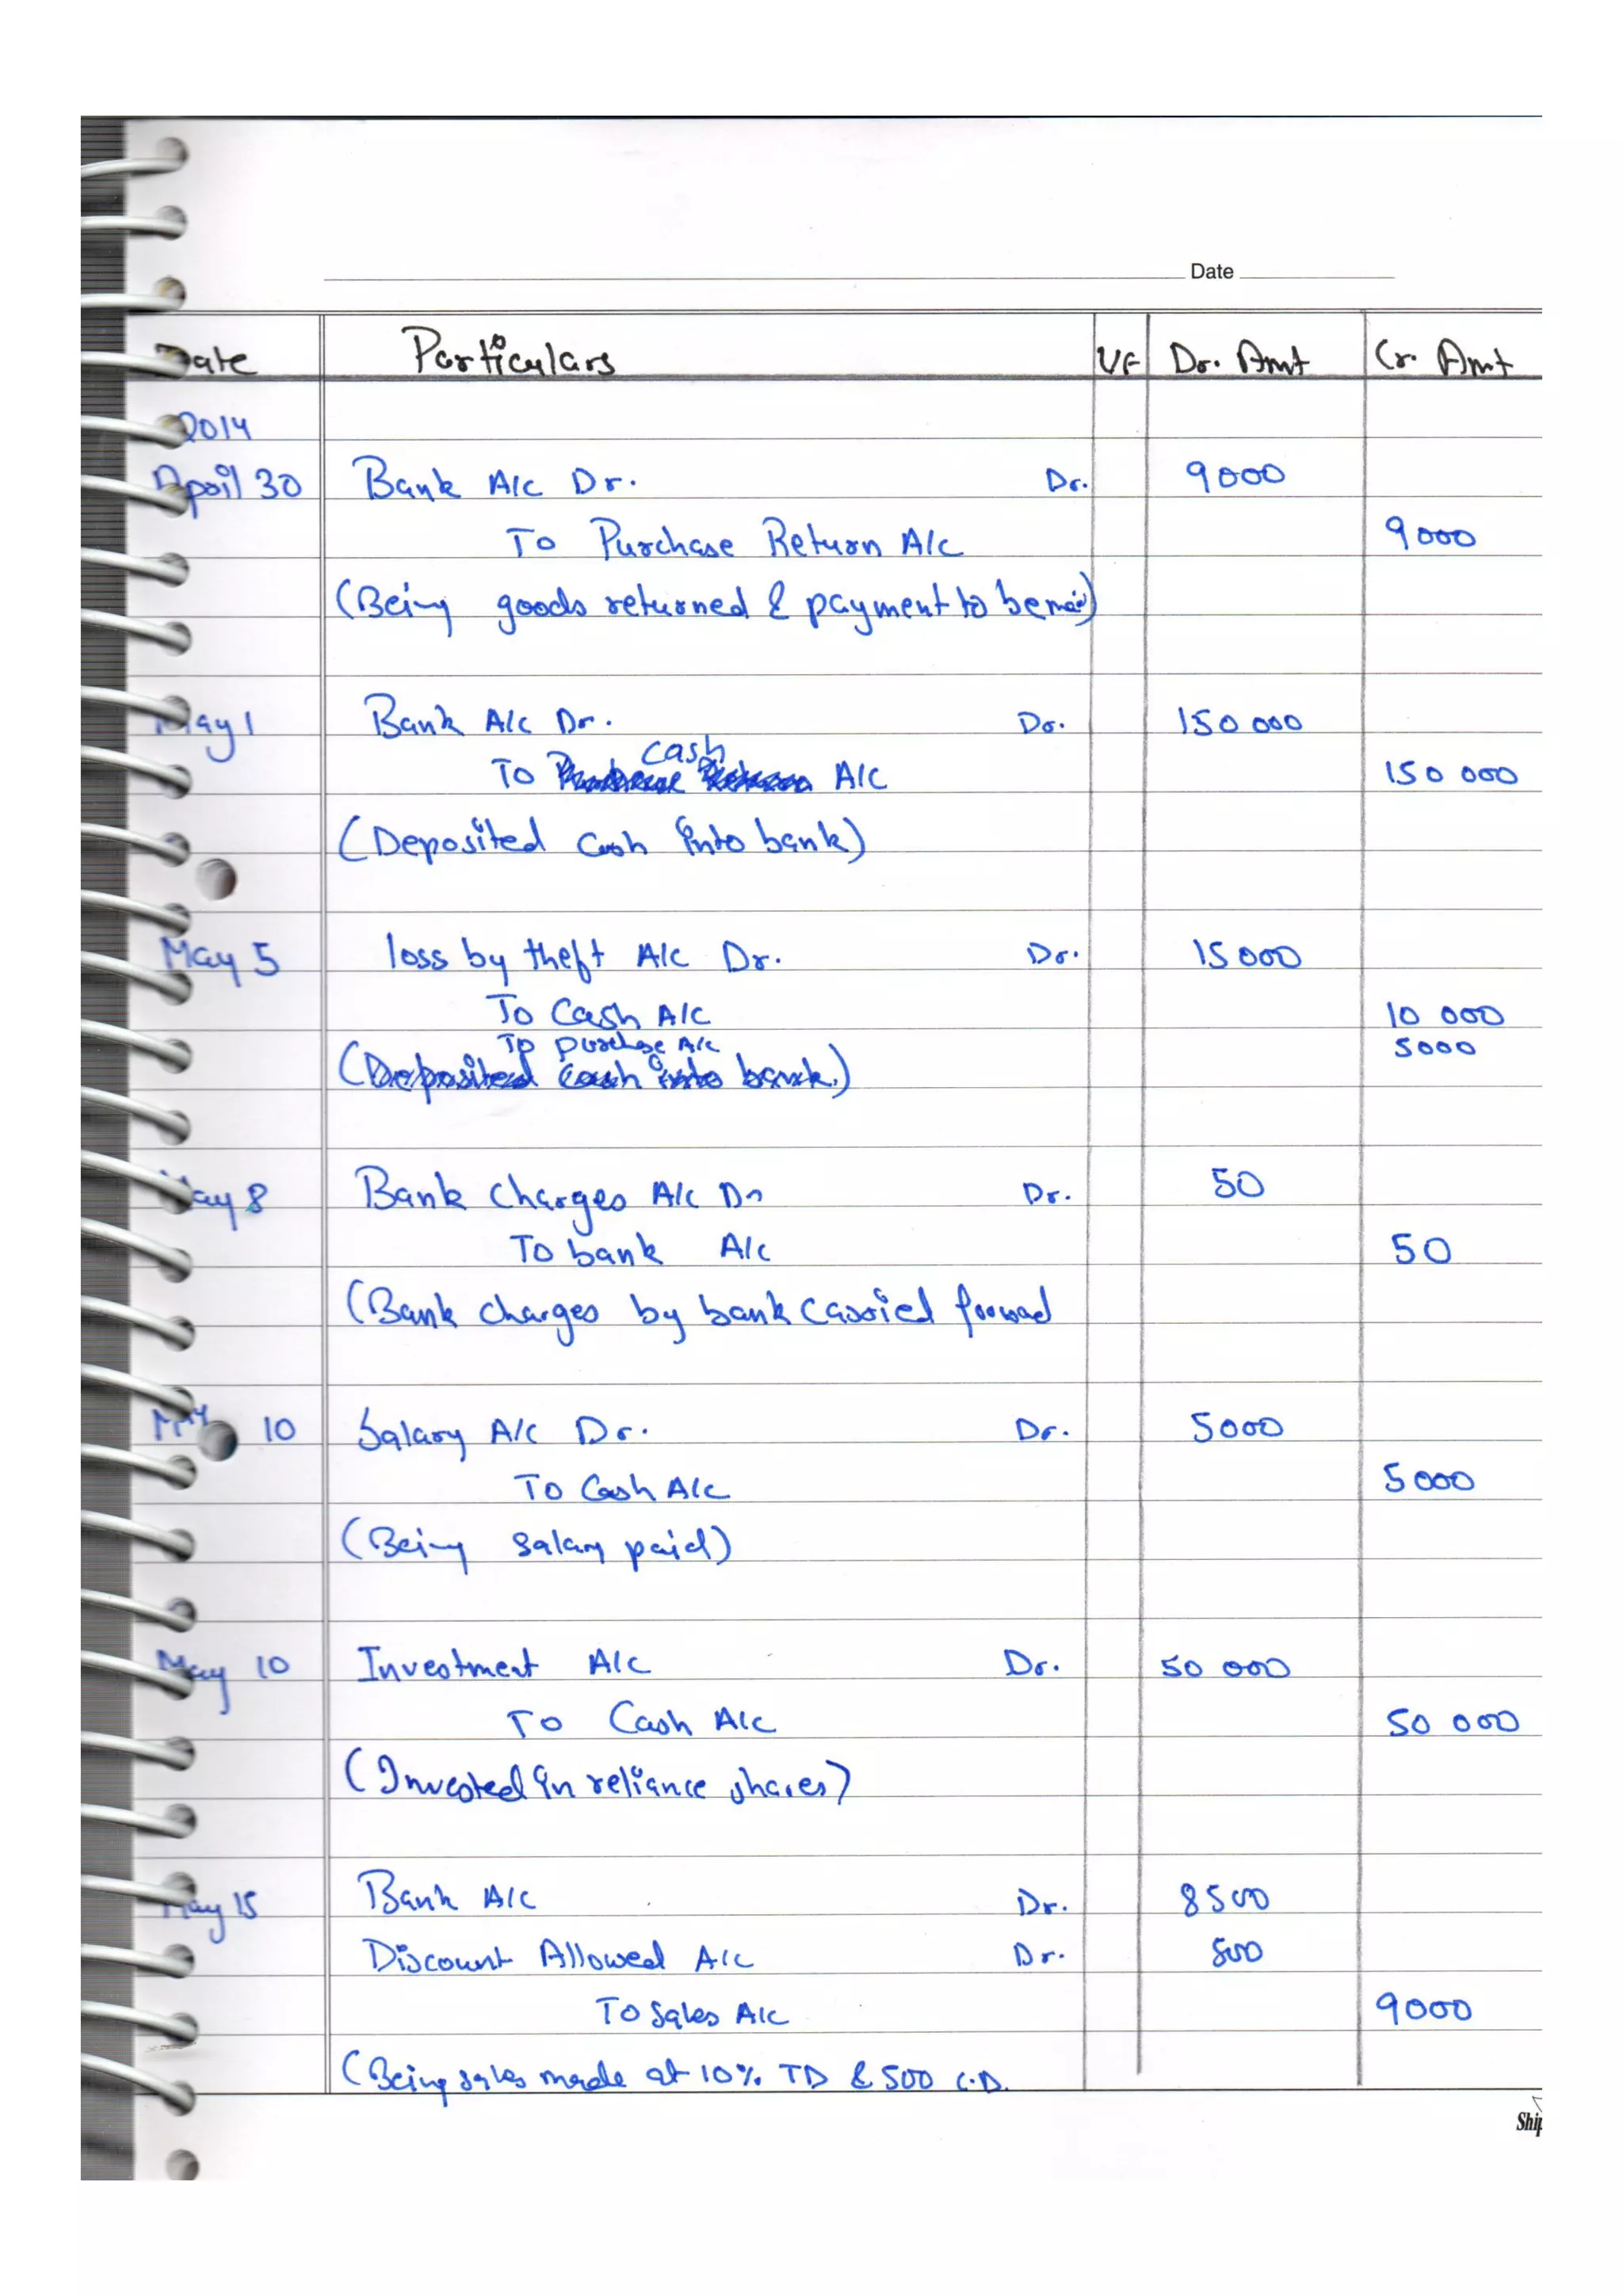 Date
Date Particulars VF Dr. Amt Cr. Amt
2014
April 30 Bank A/c Dr. Dr. 9000
To Purchase Return A/c 9000
(Being goods returned & payment to be)
May 1 Bank A/c Dr. Dr. 150 000
cash
To A/c 150 000
(Deposited Cash into bank)
May 5 loss by theft A/c Dr. Dr. 15000
To Cash A/c 10 000
To purchase A/c 5000
(Deposited cash into bank.)
May 8 Bank charges A/c Dr Dr. 50
To bank A/c 50
(Bank charges by bank carried forwad
May 10 Salary A/c Dr. Dr. 5000
To Cash A/c 5000
(Being salary paid)
May 10 Investment A/c Dr. 50 000
To Cash A/c 50 000
(Invested in reliance shares)
May 15 Bank A/c Dr. 8500
Discount Allowed A/c Dr. 500
To Sales A/c 9000
(Being sales made at 10% TD & 500 C.D.
Ship